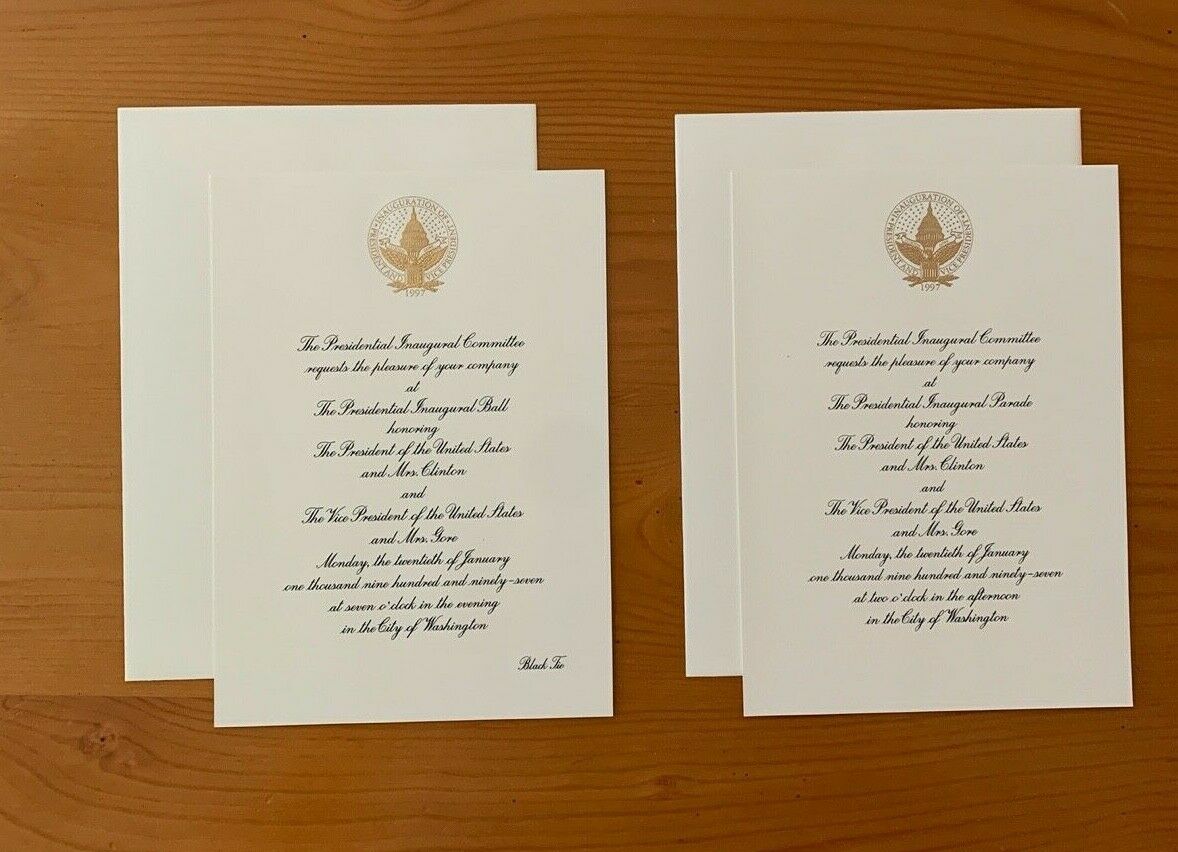 INAUGURATION OF
PRESIDENT AND VICE PRESIDENT
1997
The Presidential Inaugural Committee
requests the pleasure of your company
at
The Presidential Inaugural Ball
honoring
The President of the United States
and Mrs. Clinton
and
The Vice President of the United States
and Mrs. Gore
Monday, the twentieth of January
one thousand nine hundred and ninety-seven
at seven o'clock in the evening
in the City of Washington
Black Tie
INAUGURATION OF
PRESIDENT AND VICE PRESIDENT
1997
The Presidential Inaugural Committee
requests the pleasure of your company
at
The Presidential Inaugural Parade
honoring
The President of the United States
and Mrs. Clinton
and
The Vice President of the United States
and Mrs. Gore
Monday, the twentieth of January
one thousand nine hundred and ninety-seven
at two o'clock in the afternoon
in the City of Washington